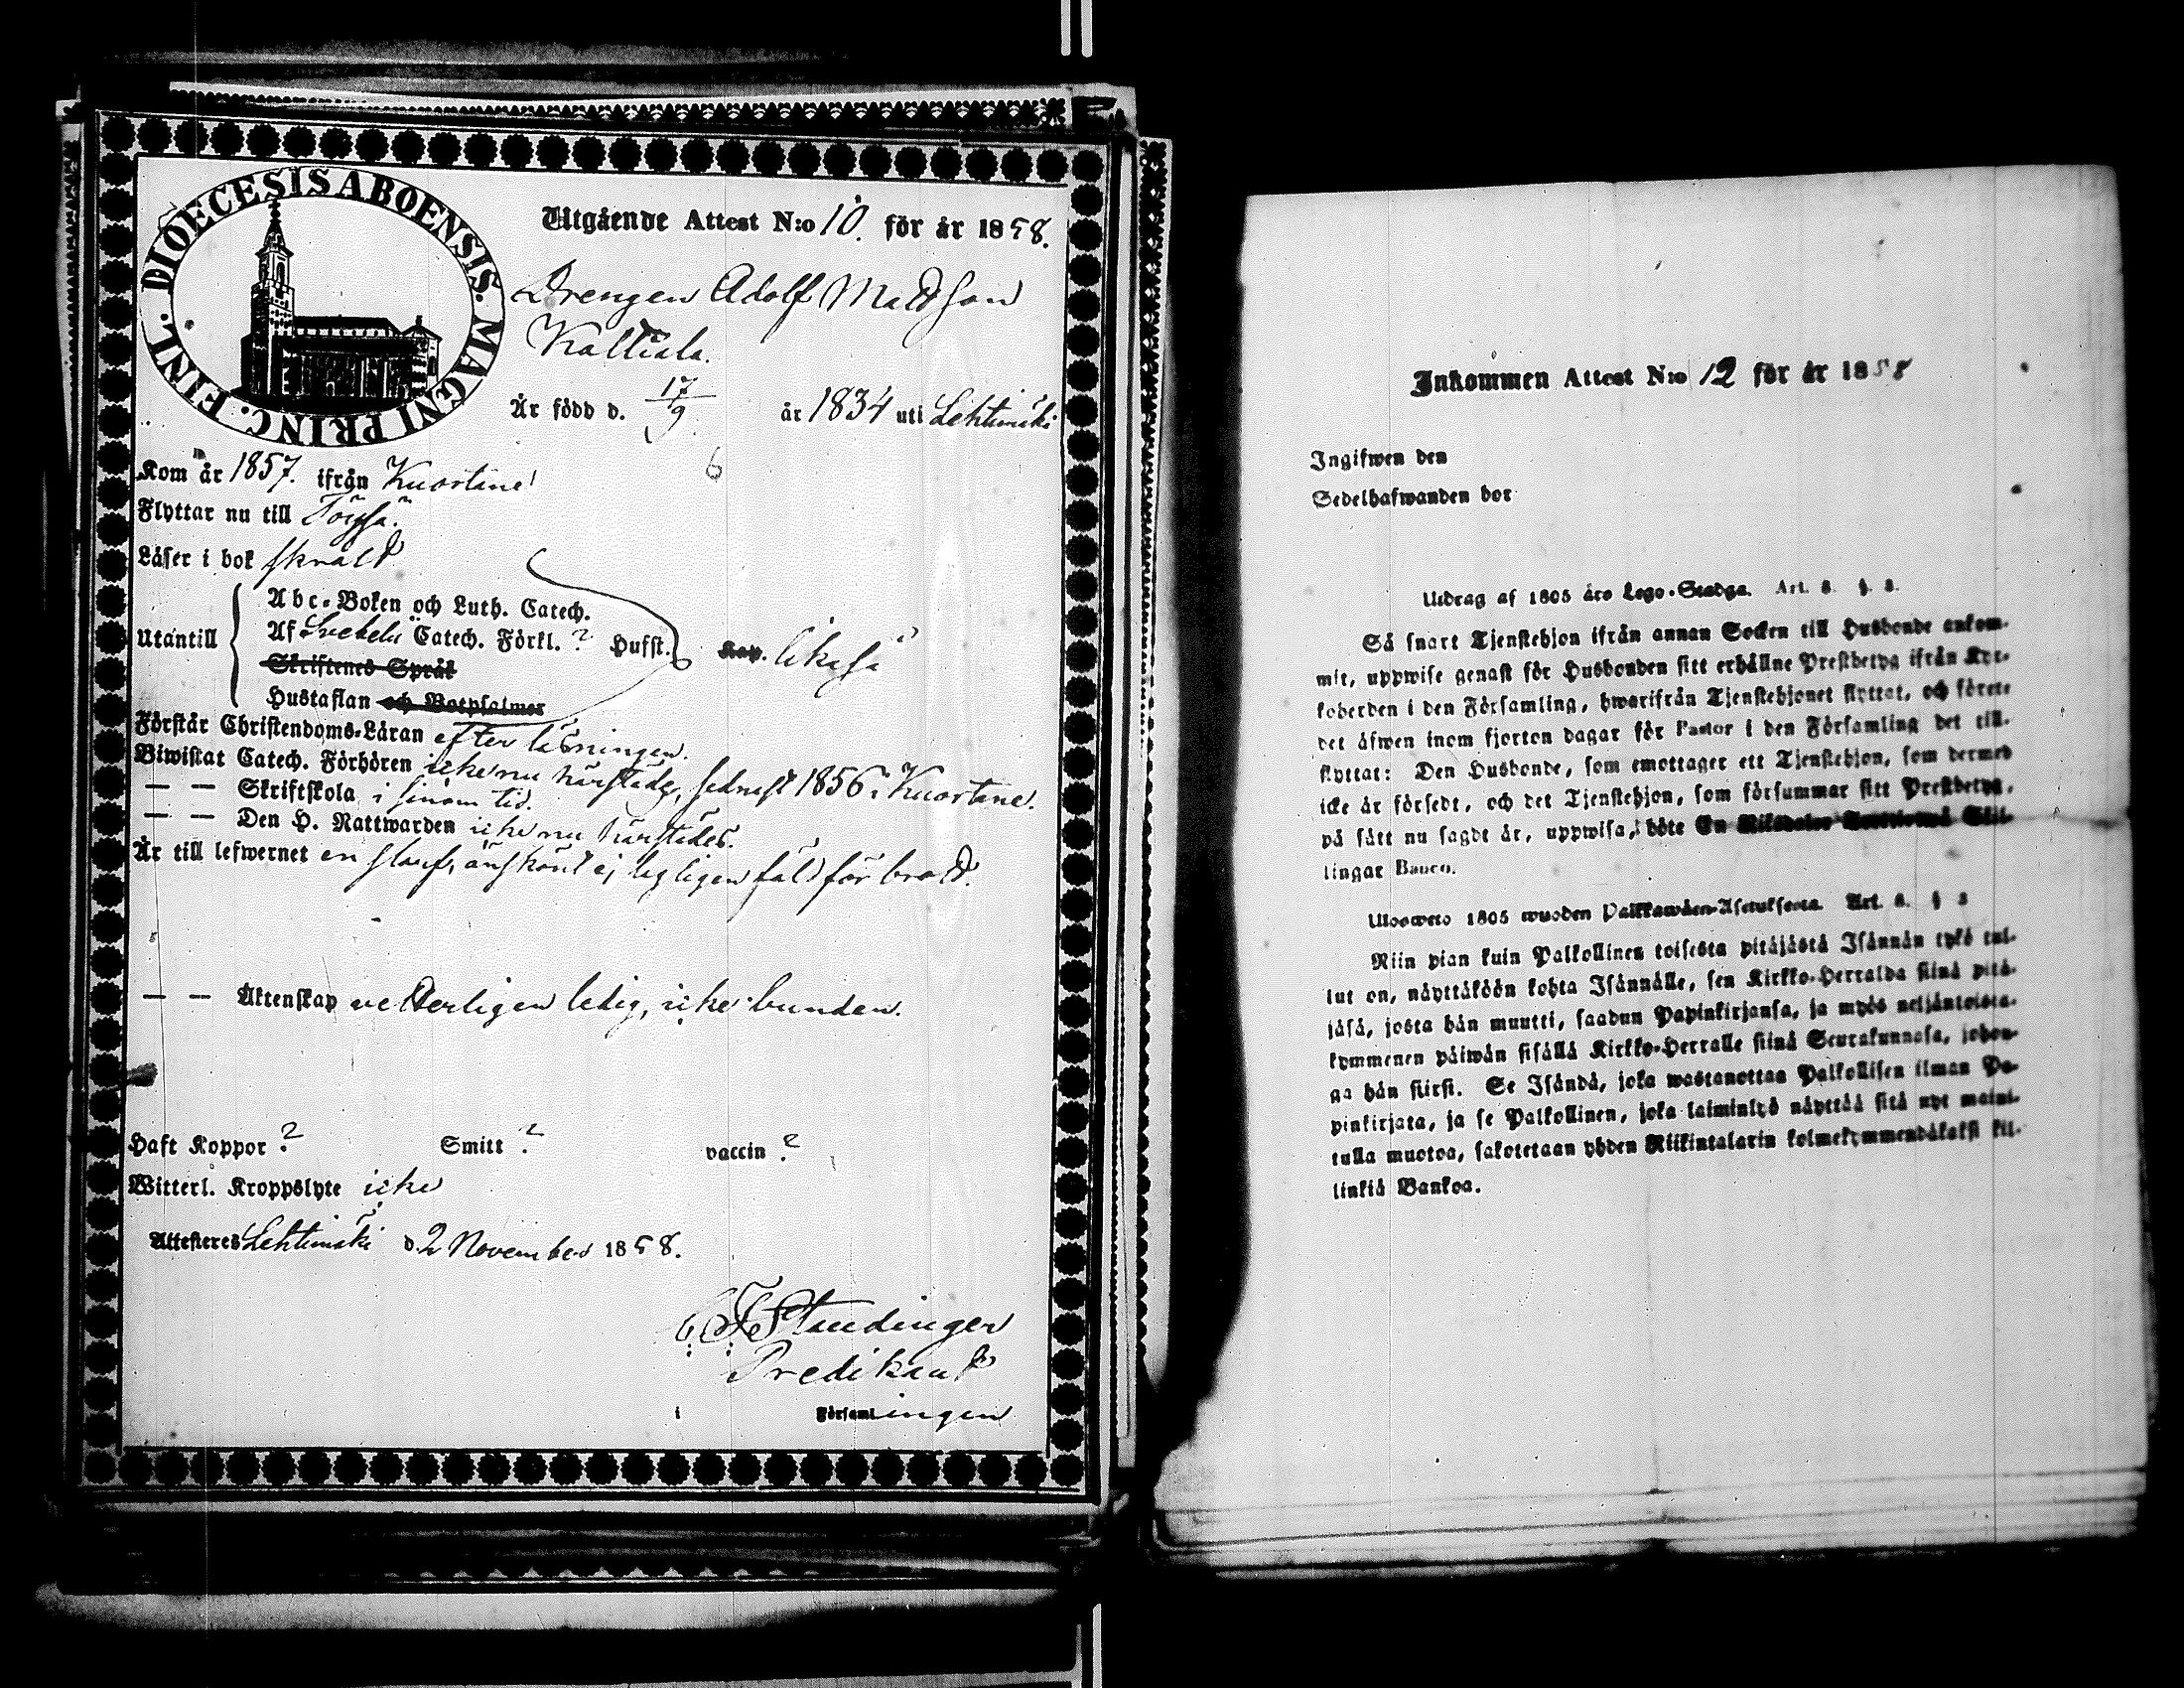 DIOECESIS ABOENSIS. MAGNI PRINC. FINL.
Utgående Attest N:o 10. för år 1858.
Drengen Adolf Mattsson
Kattiala.
Är född d. 17/9 år 1834 uti Lehtimäki
6
Kom år 1857. ifrån Kuortane
Flyttar nu till Töysä.
Läser i bok skralt
Utantill
Abc-Boken och Luth. Catech.
Af Svebelii Catech. Förkl. ? Husst. Kap. likaså
Skriftenes Språk
Hustaflan och Botpsalmer
Förstår Christendoms-Läran efter läsningen.
Biwistat Catech. Förhören icke nu härstädes, sednast 1856 i Kuortane.
— — Skriftskola i sinom tid.
— — Den H. Nattwarden icke nu härstädes.
Är till lefwernet en slarf, änskönt ej lagligen fäld för brott.
— — Äktenskap veterligen ledig, icke bunden.
Haft Koppor ? Smitt ? vaccin ?
Witterl. Kroppslyte icke
Attesteres Lehtimäki d. 2 November 1858.
C. F. Standinger
Predikant
i Församlingen
Inkommen Attest N:o 12 för år 1858
Ingifwen den
Sedelhafwanden bor
Utdrag af 1805 års Lego-Stadga. Art. 8. §. 3.
Så snart Tjenstehjon ifrån annan Socken till Husbonde ankom-
mit, uppwise genast för Husbonden sitt erhållne Prestbetyg ifrån Kyr-
koherden i den Församling, hwarifrån Tjenstehjonet flyttat, och förete
det äfwen inom fjorton dagar för Pastor i den Församling det till-
flyttat: Den Husbonde, som emottager ett Tjenstehjon, som dermed
icke är försedt, och det Tjenstehjon, som försummar sitt Prestbetyg,
på sätt nu sagdt är, uppwisa, böte En Riksdaler Trettiotwå Skil-
lingar Banco.
Ulosweto 1805 wuoden Palkkawäen-Asetuksesta. Art. 8. § 3
Niin pian kuin Palkollinen toisesta pitäjästä Isännän tykö tul-
lut on, näyttäköön kohta Isännälle, sen Kirkko-Herralda siinä pitä-
jäsä, josta hän muutti, saadun Papinkirjansa, ja myös neljäntoista-
kymmenen päiwän sisällä Kirkko-Herralle siinä Seurakunnasa, johon-
ga hän siirsi. Se Isändä, joka wastanottaa Palkollisen ilman Pa-
pinkirjata, ja se Palkollinen, joka laiminlyö näyttää sitä nyt maini-
tulla muotoa, sakotetaan yhden Riikintalarin kolmekymmendäkaksi kil-
linkiä Bankoa.